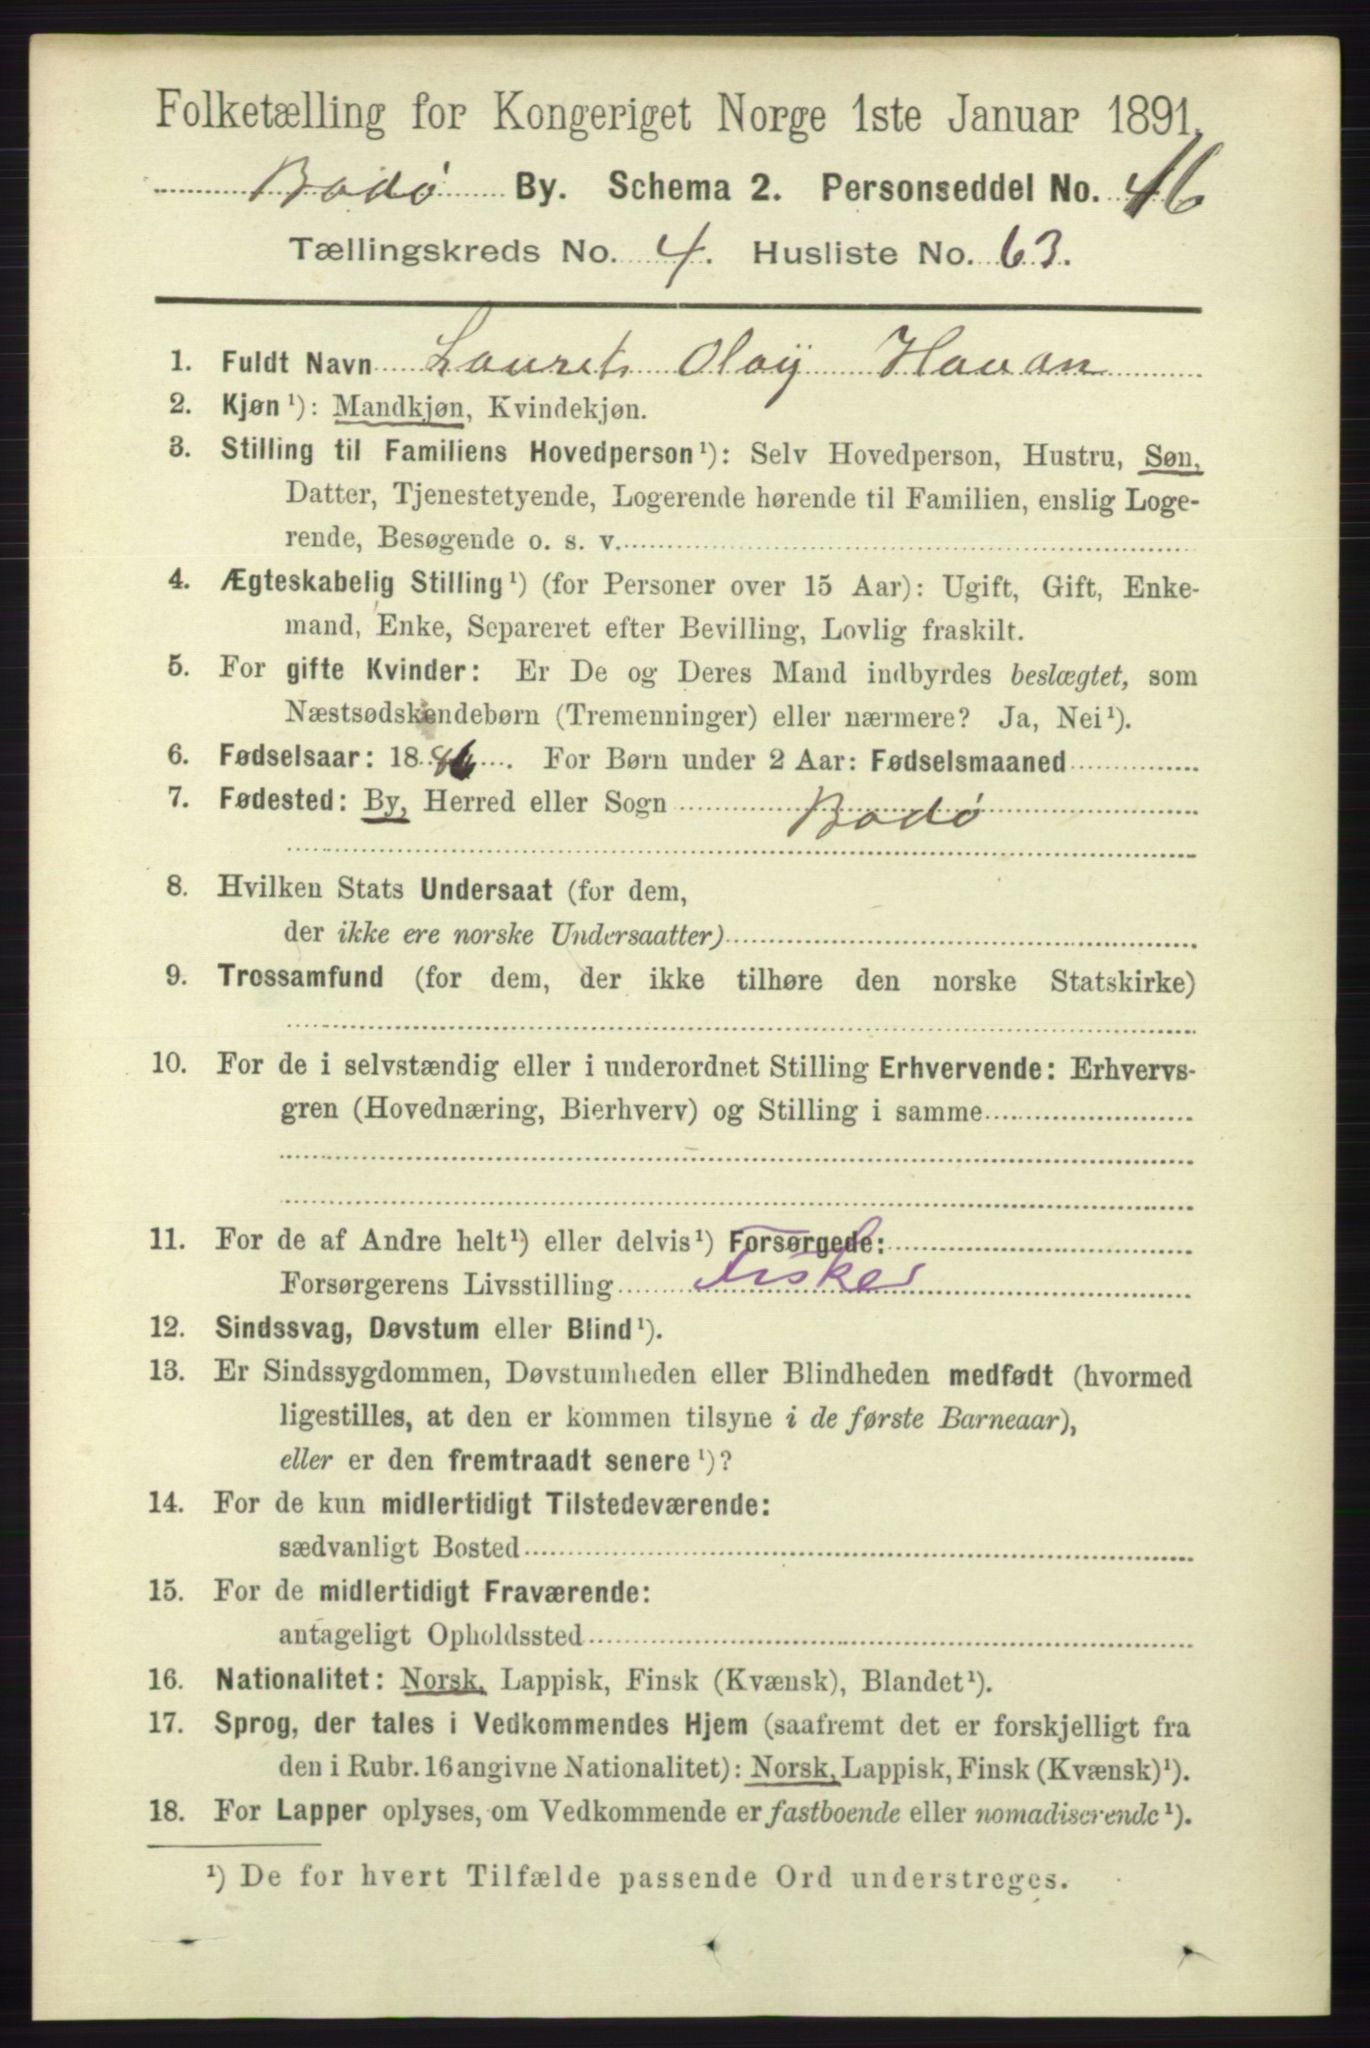 Folketælling for Kongeriget Norge 1ste Januar 1891.
Bodø By. Schema 2. Personseddel No. 46
Tællingskreds No. 4. Husliste No. 63.
1. Fuldt Navn Laurets Olaij Havan
2. Kjøn ¹): Mandkjøn, Kvindekjøn.
3. Stilling til Familiens Hovedperson ¹): Selv Hovedperson, Hustru, Søn,
Datter, Tjenestetyende, Logerende hørende til Familien, enslig Loge-
rende, Besøgende o. s. v.
4. Ægteskabelig Stilling ¹) (for Personer over 15 Aar): Ugift, Gift, Enke-
mand, Enke, Separeret efter Bevilling, Lovlig fraskilt.
5. For gifte Kvinder: Er De og Deres Mand indbyrdes beslægtet, som
Næstsødskendebørn (Tremenninger) eller nærmere? Ja, Nei ¹).
6. Fødselsaar: 1886. For Børn under 2 Aar: Fødselsmaaned
7. Fødested: By, Herred eller Sogn Bodø
8. Hvilken Stats Undersaat (for dem,
der ikke ere norske Undersaatter)
9. Trossamfund (for dem, der ikke tilhøre den norske Statskirke)
10. For de i selvstændig eller i underordnet Stilling Erhvervende: Erhvervs-
gren (Hovednæring, Bierhverv) og Stilling i samme
11. For de af Andre helt ¹) eller delvis ¹) Forsørgede:
Forsørgerens Livsstilling Fisker
12. Sindssvag, Døvstum eller Blind ¹).
13. Er Sindssygdommen, Døvstumheden eller Blindheden medfødt (hvormed
ligestilles, at den er kommen tilsyne i de første Barneaar),
eller er den fremtraadt senere ¹)?
14. For de kun midlertidigt Tilstedeværende:
sædvanligt Bosted
15. For de midlertidigt Fraværende:
antageligt Opholdssted
16. Nationalitet: Norsk, Lappisk, Finsk (Kvænsk), Blandet ¹).
17. Sprog, der tales i Vedkommendes Hjem (saafremt det er forskjelligt fra
den i Rubr. 16 angivne Nationalitet): Norsk, Lappisk, Finsk (Kvænsk) ¹).
18. For Lapper oplyses, om Vedkommende er fastboende eller nomadiserende ¹).
¹) De for hvert Tilfælde passende Ord understreges.